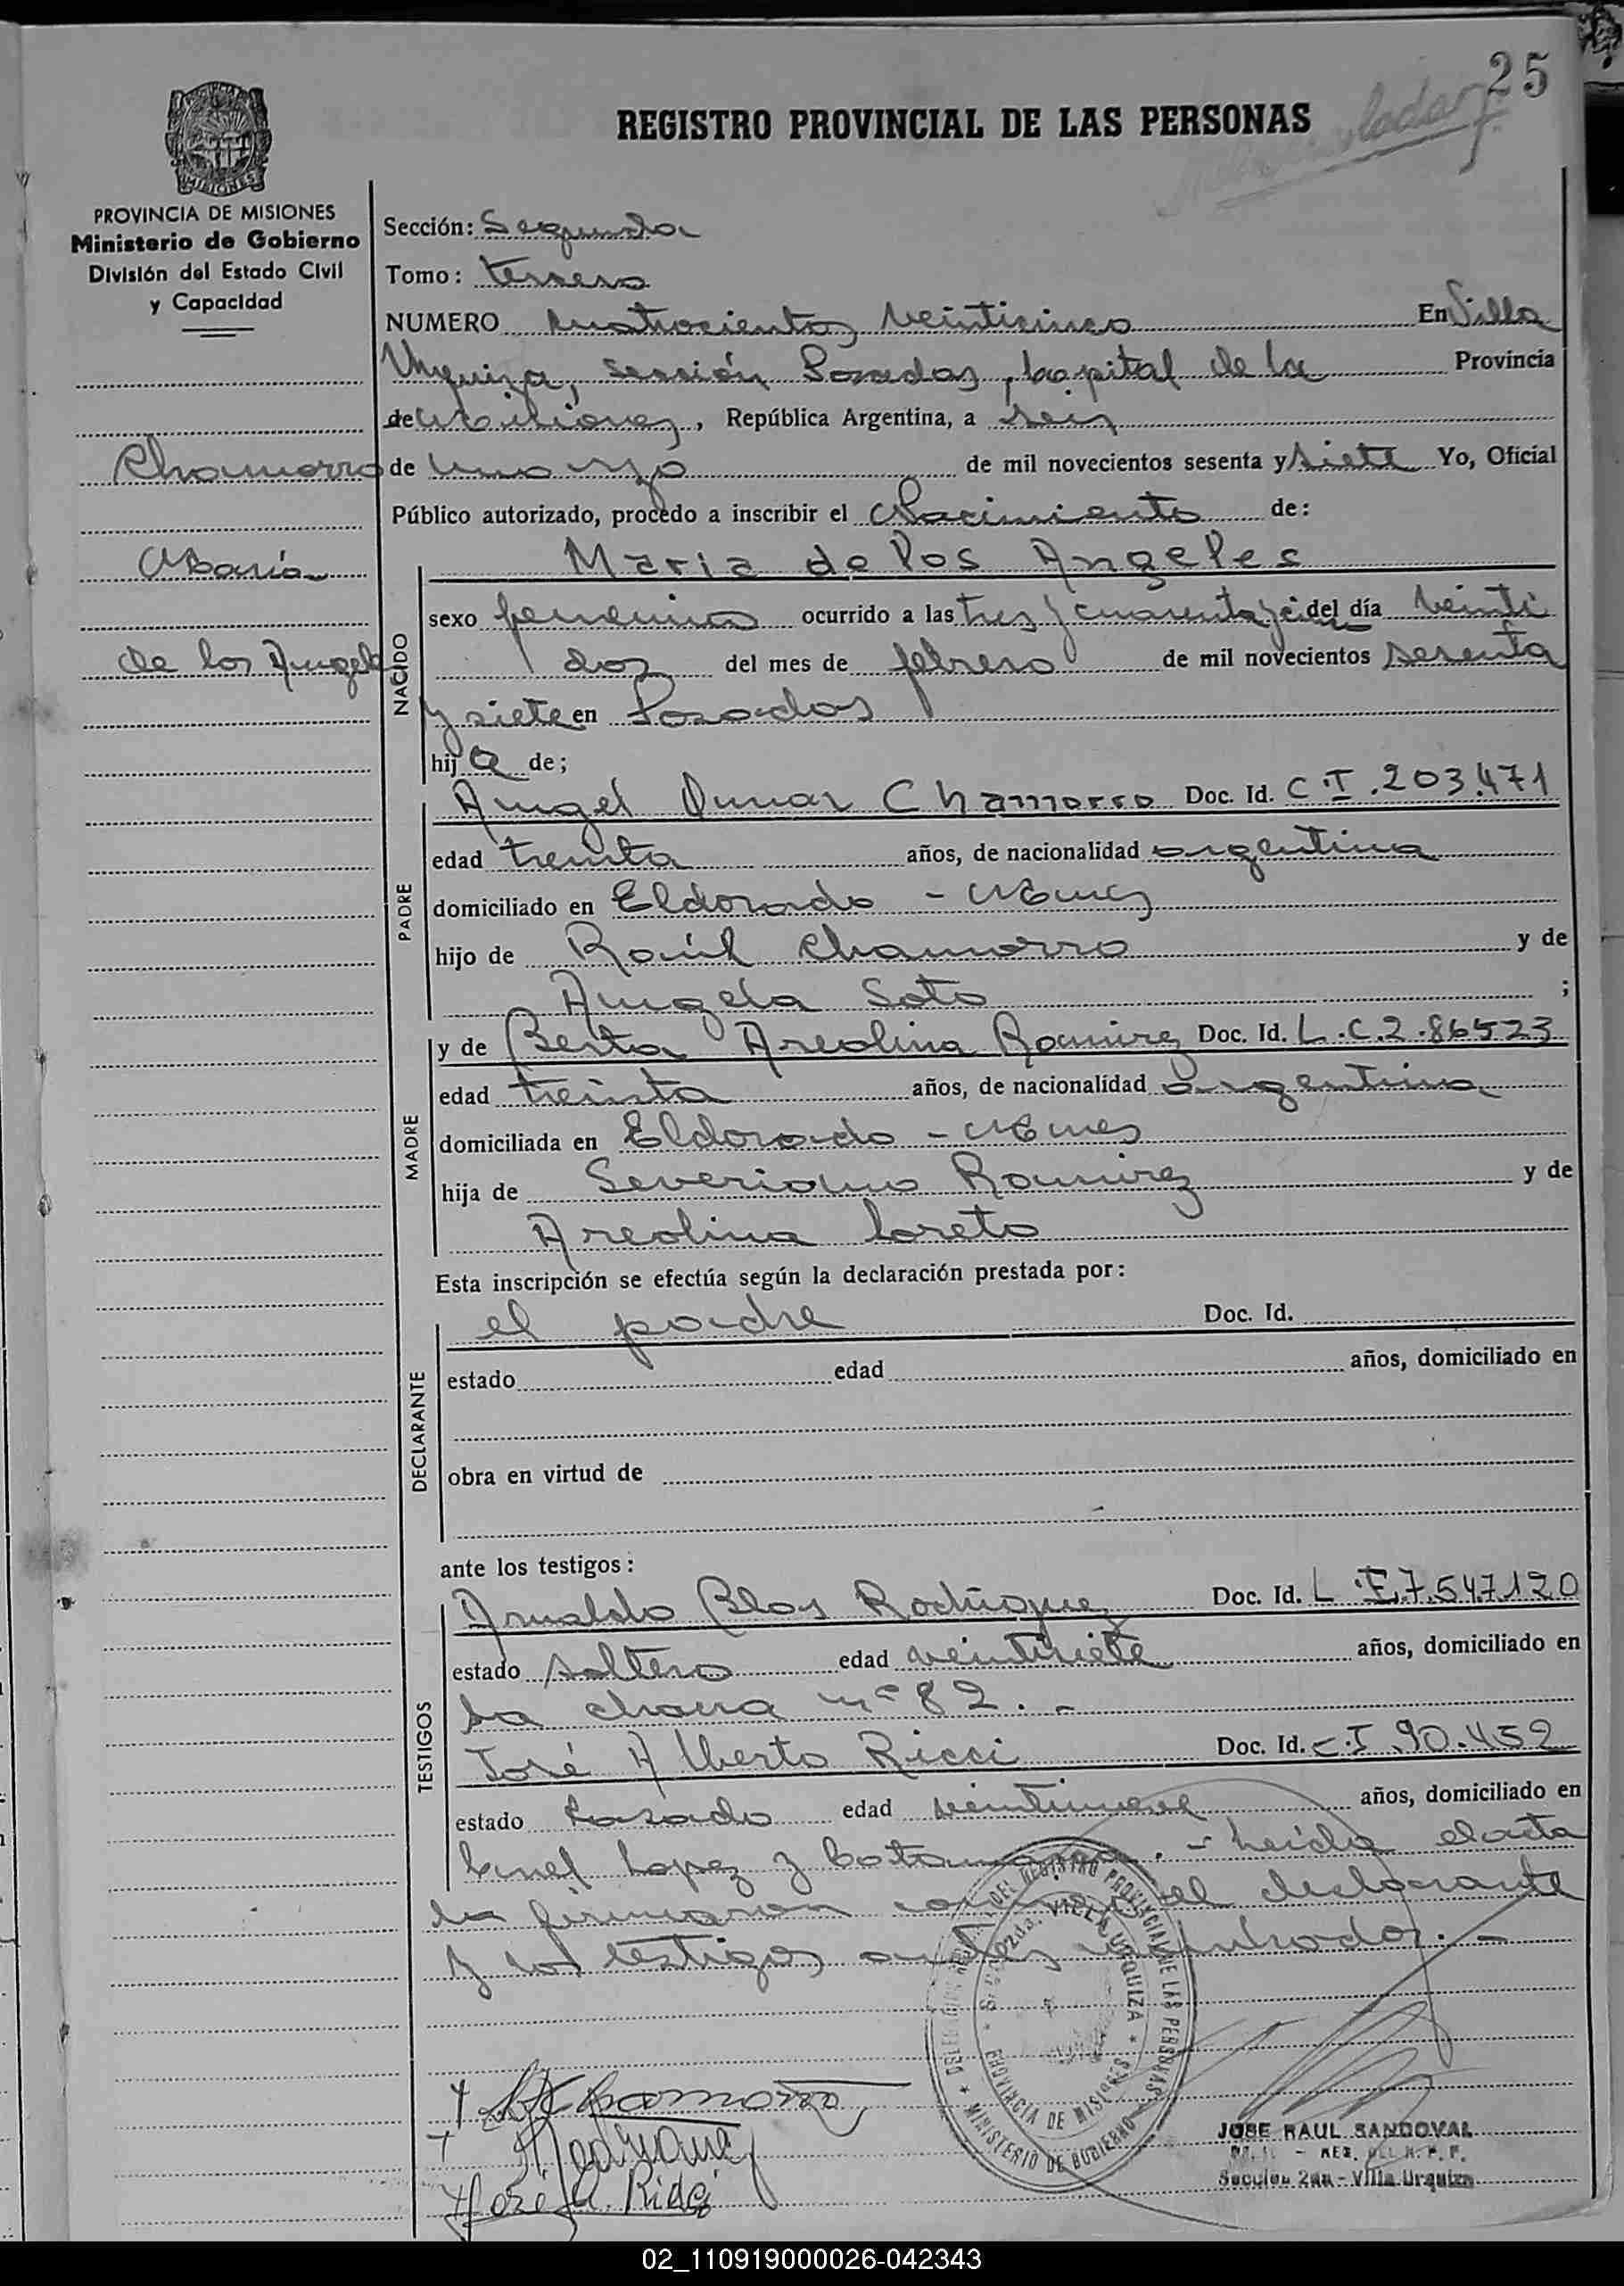 25
REGISTRO PROVINCIAL DE LAS PERSONAS
PROVINCIA DE MISIONES
Ministerio de Gobierno
División del Estado Civil
y Capacidad
Chamorro
María
de los Angeles
Sección: Segunda
Tomo: tercero
NUMERO cuatrocientos veinticinco En Villa
Urquiza, sección Posadas, capital de la Provincia
de Misiones, República Argentina, a seis
de marzo de mil novecientos sesenta y siete Yo, Oficial
Público autorizado, procedo a inscribir el Nacimiento de:
NACIDO
Maria de los Angeles
sexo femenino ocurrido a las tres y cuarenta y del día veinti
dos del mes de febrero de mil novecientos sesenta
y siete en Posadas
hija de;
PADRE
Angel Omar Chamorro Doc. Id. C.I.203.471
edad treinta años, de nacionalidad argentina
domiciliado en Eldorado - Mnes
hijo de Raúl Chamorro y de
Angela Soto ;
MADRE
y de Berta Areolina Ramirez Doc. Id. L.C.2.86523
edad treinta años, de nacionalidad argentina
domiciliada en Eldorado - Mnes
hija de Severiano Ramirez y de
Areolina Loreto
Esta inscripción se efectúa según la declaración prestada por:
DECLARANTE
el padre Doc. Id.
estado edad años, domiciliado en
obra en virtud de
ante los testigos:
TESTIGOS
Arnaldo Blas Rodriguez Doc. Id. L.E.7.547.120
estado soltero edad veintisiete años, domiciliado en
la chacra nº 82.-
José Alberto Ricci Doc. Id. C.I.90.452
estado casado edad veintinueve años, domiciliado en
Cnel Lopez y Catamarca.- Leida el acta
la firmaron conmigo el declarante
y los testigos antes nombrados.-
DEL REGISTRO PROVINCIAL DE LAS PERSONAS
VILLA URQUIZA
PROVINCIA DE MISIONES
MINISTERIO DE GOBIERNO
Chamorro
Rodriguez
José A. Ricci
JOSE RAUL SANDOVAL
Seccion 2da - Villa Urquiza
02_110919000026-042343